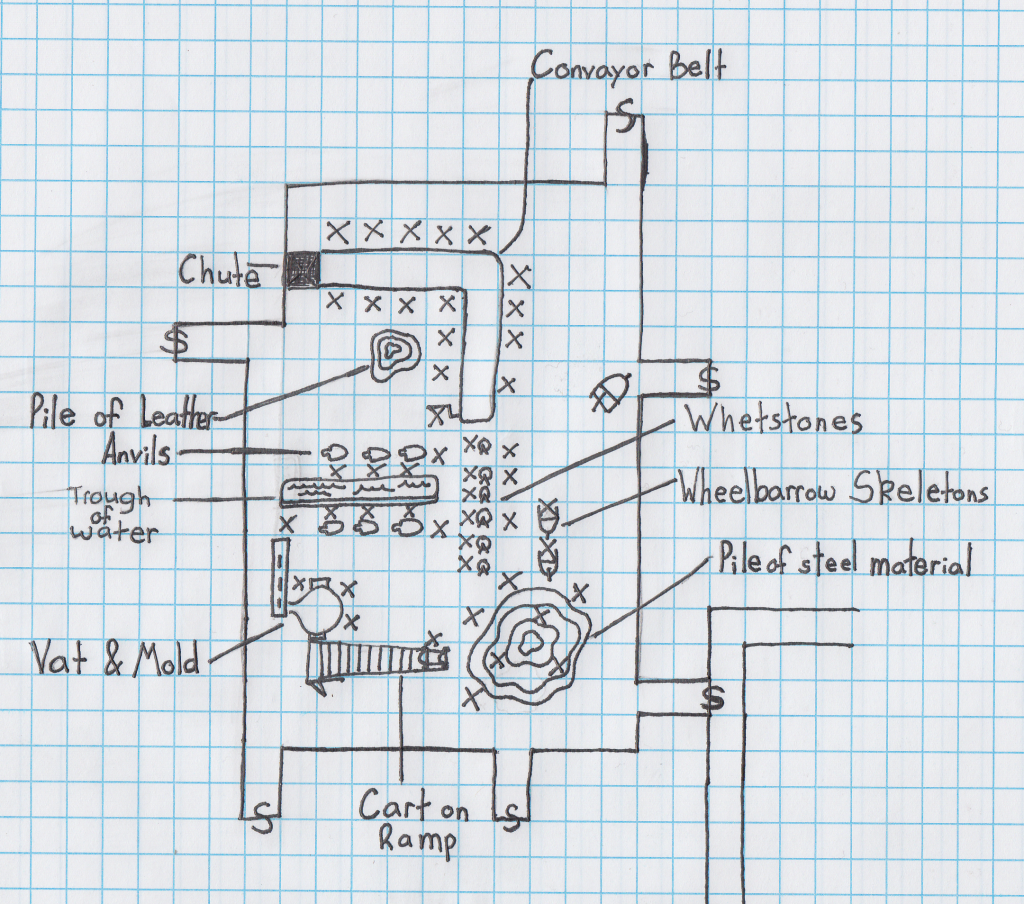 Convayor Belt
S
Chute
S
S
Pile of Leather
Whetstones
Anvils
Trough
of
water
Wheelbarrow Skeletons
Pile of steel material
Vat & Mold
S
Cart on
Ramp
S
S